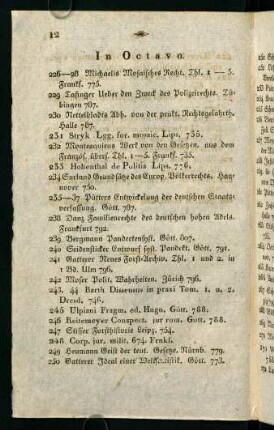 12
In Octavo.
226—98 Michaelis Mosaisches Recht. Thl. 1 — 5.
Frankf. 775.
229 Tafinger Ueber den Zweck des Polizeirechts. Tü-
bingen 787.
230 Nettelbladts Abh. von der prakt. Rechtsgelahrth.
Halle 787.
231 Stryk Lyg. for. mosaic. Lips. 735.
232 Montesquieus Werk von den Gesezen. aus dem
Französ. übers. Thl. 1—5. Frankf. 755.
233 Hohenthal de Politia Lips. 776.
234 Surland Grundsätze des Europ. Völkerrechts. Han-
nover 750.
235—37 Pütters Entwickelung der deutschen Staats-
verfassung. Gött. 787.
238 Danz Familienrechte des deutschen hohen Adels.
Frankfurt 792.
239 Bergmann Pandektensyst. Gött. 807.
240 Seidensticker Entwurf syst. Pandekt. Gött. 791.
241 Gatterer Neues Forst-Archiv. Thl. 1 und 2. in
1 Bd. Ulm 796.
242 Moser Polit. Wahrheiten. Zürich 796.
243. 44 Berth Dissensus in praxi Tom. 1. u. 2.
Dresd. 746.
245 Ulpiani Fragm. ed. Hugo. Gött. 788.
246 Reitemeyer Conspect. jur. rom. Gött. 788.
247 Stisser Forsthistorie Leipz. 754.
248 Corp. jur. milit. 674. Frnkf.
249 Heumann Geist der teut. Geseze. Nürnb. 779.
250 Gatterer Ideal einer Weltstatistik. Gött. 773.